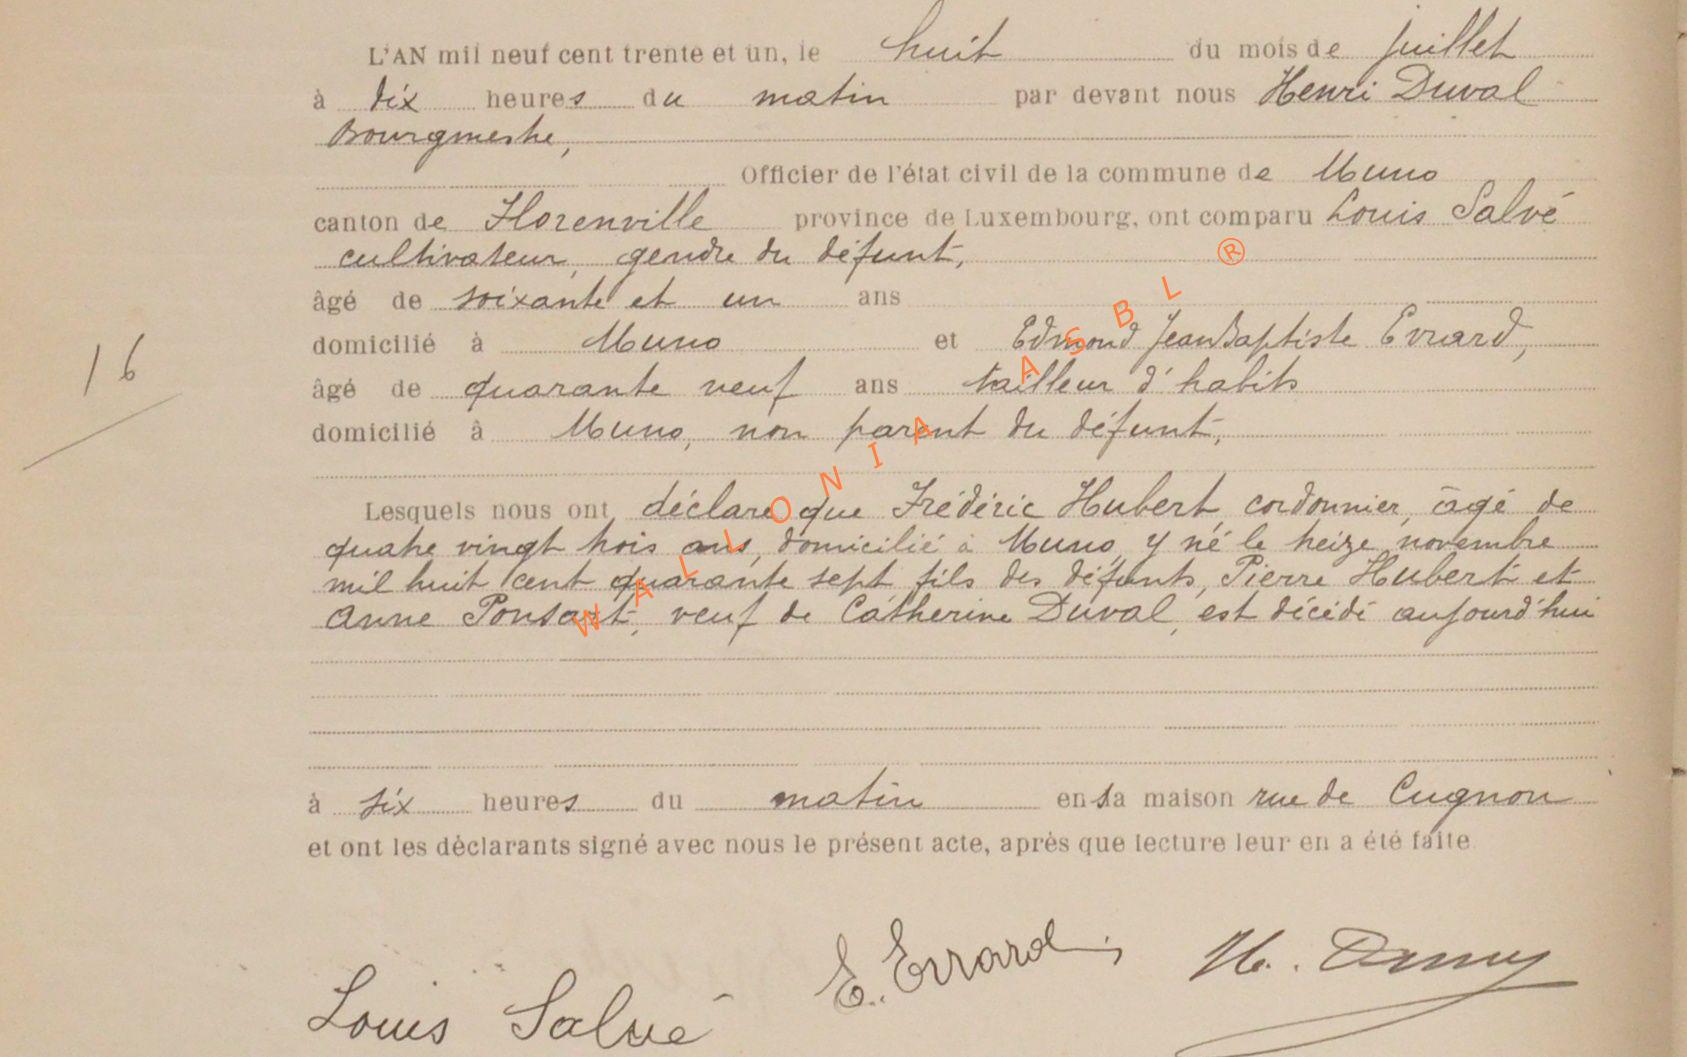 L'AN mil neuf cent trente et un, le huit du mois de juillet
à dix heures du matin par devant nous Henri Duval
Bourgmestre,
Officier de l'état civil de la commune de Muno
canton de Florenville province de Luxembourg, ont comparu Louis Salvé
cultivateur, gendre du défunt,
âgé de soixante et un ans
domicilié à Muno et Edmond Jean Baptiste Evrard,
âgé de quarante neuf ans tailleur d'habits
domicilié à Muno, non parent du défunt,
16
Lesquels nous ont déclaré que Frédéric Hubert, cordonnier, âgé de
quatre vingt trois ans, domicilié à Muno, y né le treize novembre
mil huit cent quarante sept fils des défunts, Pierre Hubert et
Anne Ponsart, veuf de Catherine Duval, est décédé aujourd'hui
à six heures du matin en sa maison rue de Cugnon
et ont les déclarants signé avec nous le présent acte, après que lecture leur en a été faite
Louis Salvé E. Evrard H. Duval
WALLONIA ASBL ®